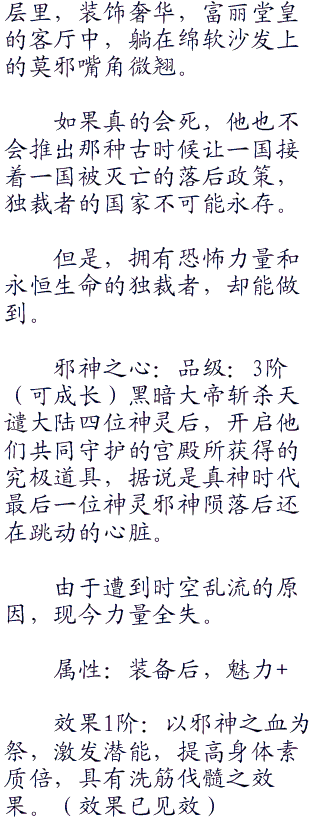 层里，装饰奢华，富丽堂皇
的客厅中，躺在绵软沙发上
的莫邪嘴角微翘。
如果真的会死，他也不
会推出那种古时候让一国接
着一国被灭亡的落后政策，
独裁者的国家不可能永存。
但是，拥有恐怖力量和
永恒生命的独裁者，却能做
到。
邪神之心：品级：3阶
（可成长）黑暗大帝斩杀天
谴大陆四位神灵后，开启他
们共同守护的宫殿所获得的
究极道具，据说是真神时代
最后一位神灵邪神陨落后还
在跳动的心脏。
由于遭到时空乱流的原
因，现今力量全失。
属性：装备后，魅力+
效果1阶：以邪神之血为
祭，激发潜能，提高身体素
质倍，具有洗筋伐髓之效
果。（效果已见效）